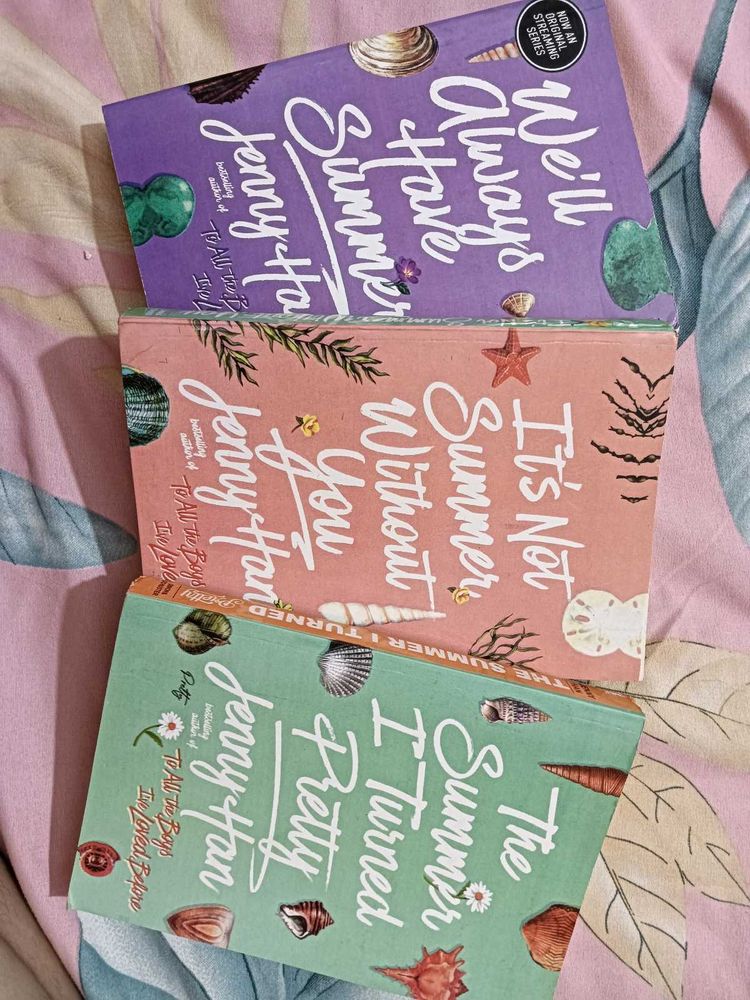 NOW AN
ORIGINAL
STREAMING
SERIES
We'll
Always
Have
Summer
Jenny Ha
bestselling
author of
To All the
I've
It's Not
Summer
Without
You
Jenny Han
bestselling
author of
To All the Boys
I've Love
THE SUMMER I TURNED
Pretty
The
Summer
I Turned
Pretty
Jenny Han
bestselling
author of
To All the Boys
I've Loved Before
Pretty